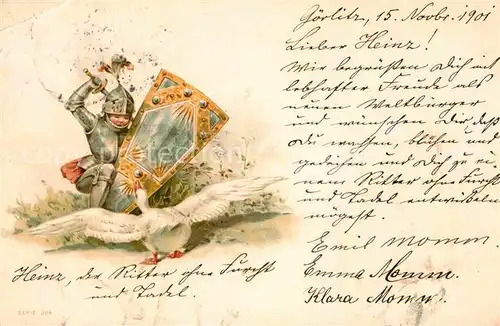 Görlitz, 15. Novbr. 1901
Lieber Heinz!
Wir begrüßen Dich mit
lebhafter Freude als
neuen Weltbürger
und wünschen Dir daß
Du wachsen, blühen und
gedeihen und Dich zu ei-
nem Ritter ohne Furcht
und Tadel entwickeln
mögest.
Emil Momm.
Emma Momm.
Klara Momm.
Heinz, der Ritter ohne Furcht
und Tadel.